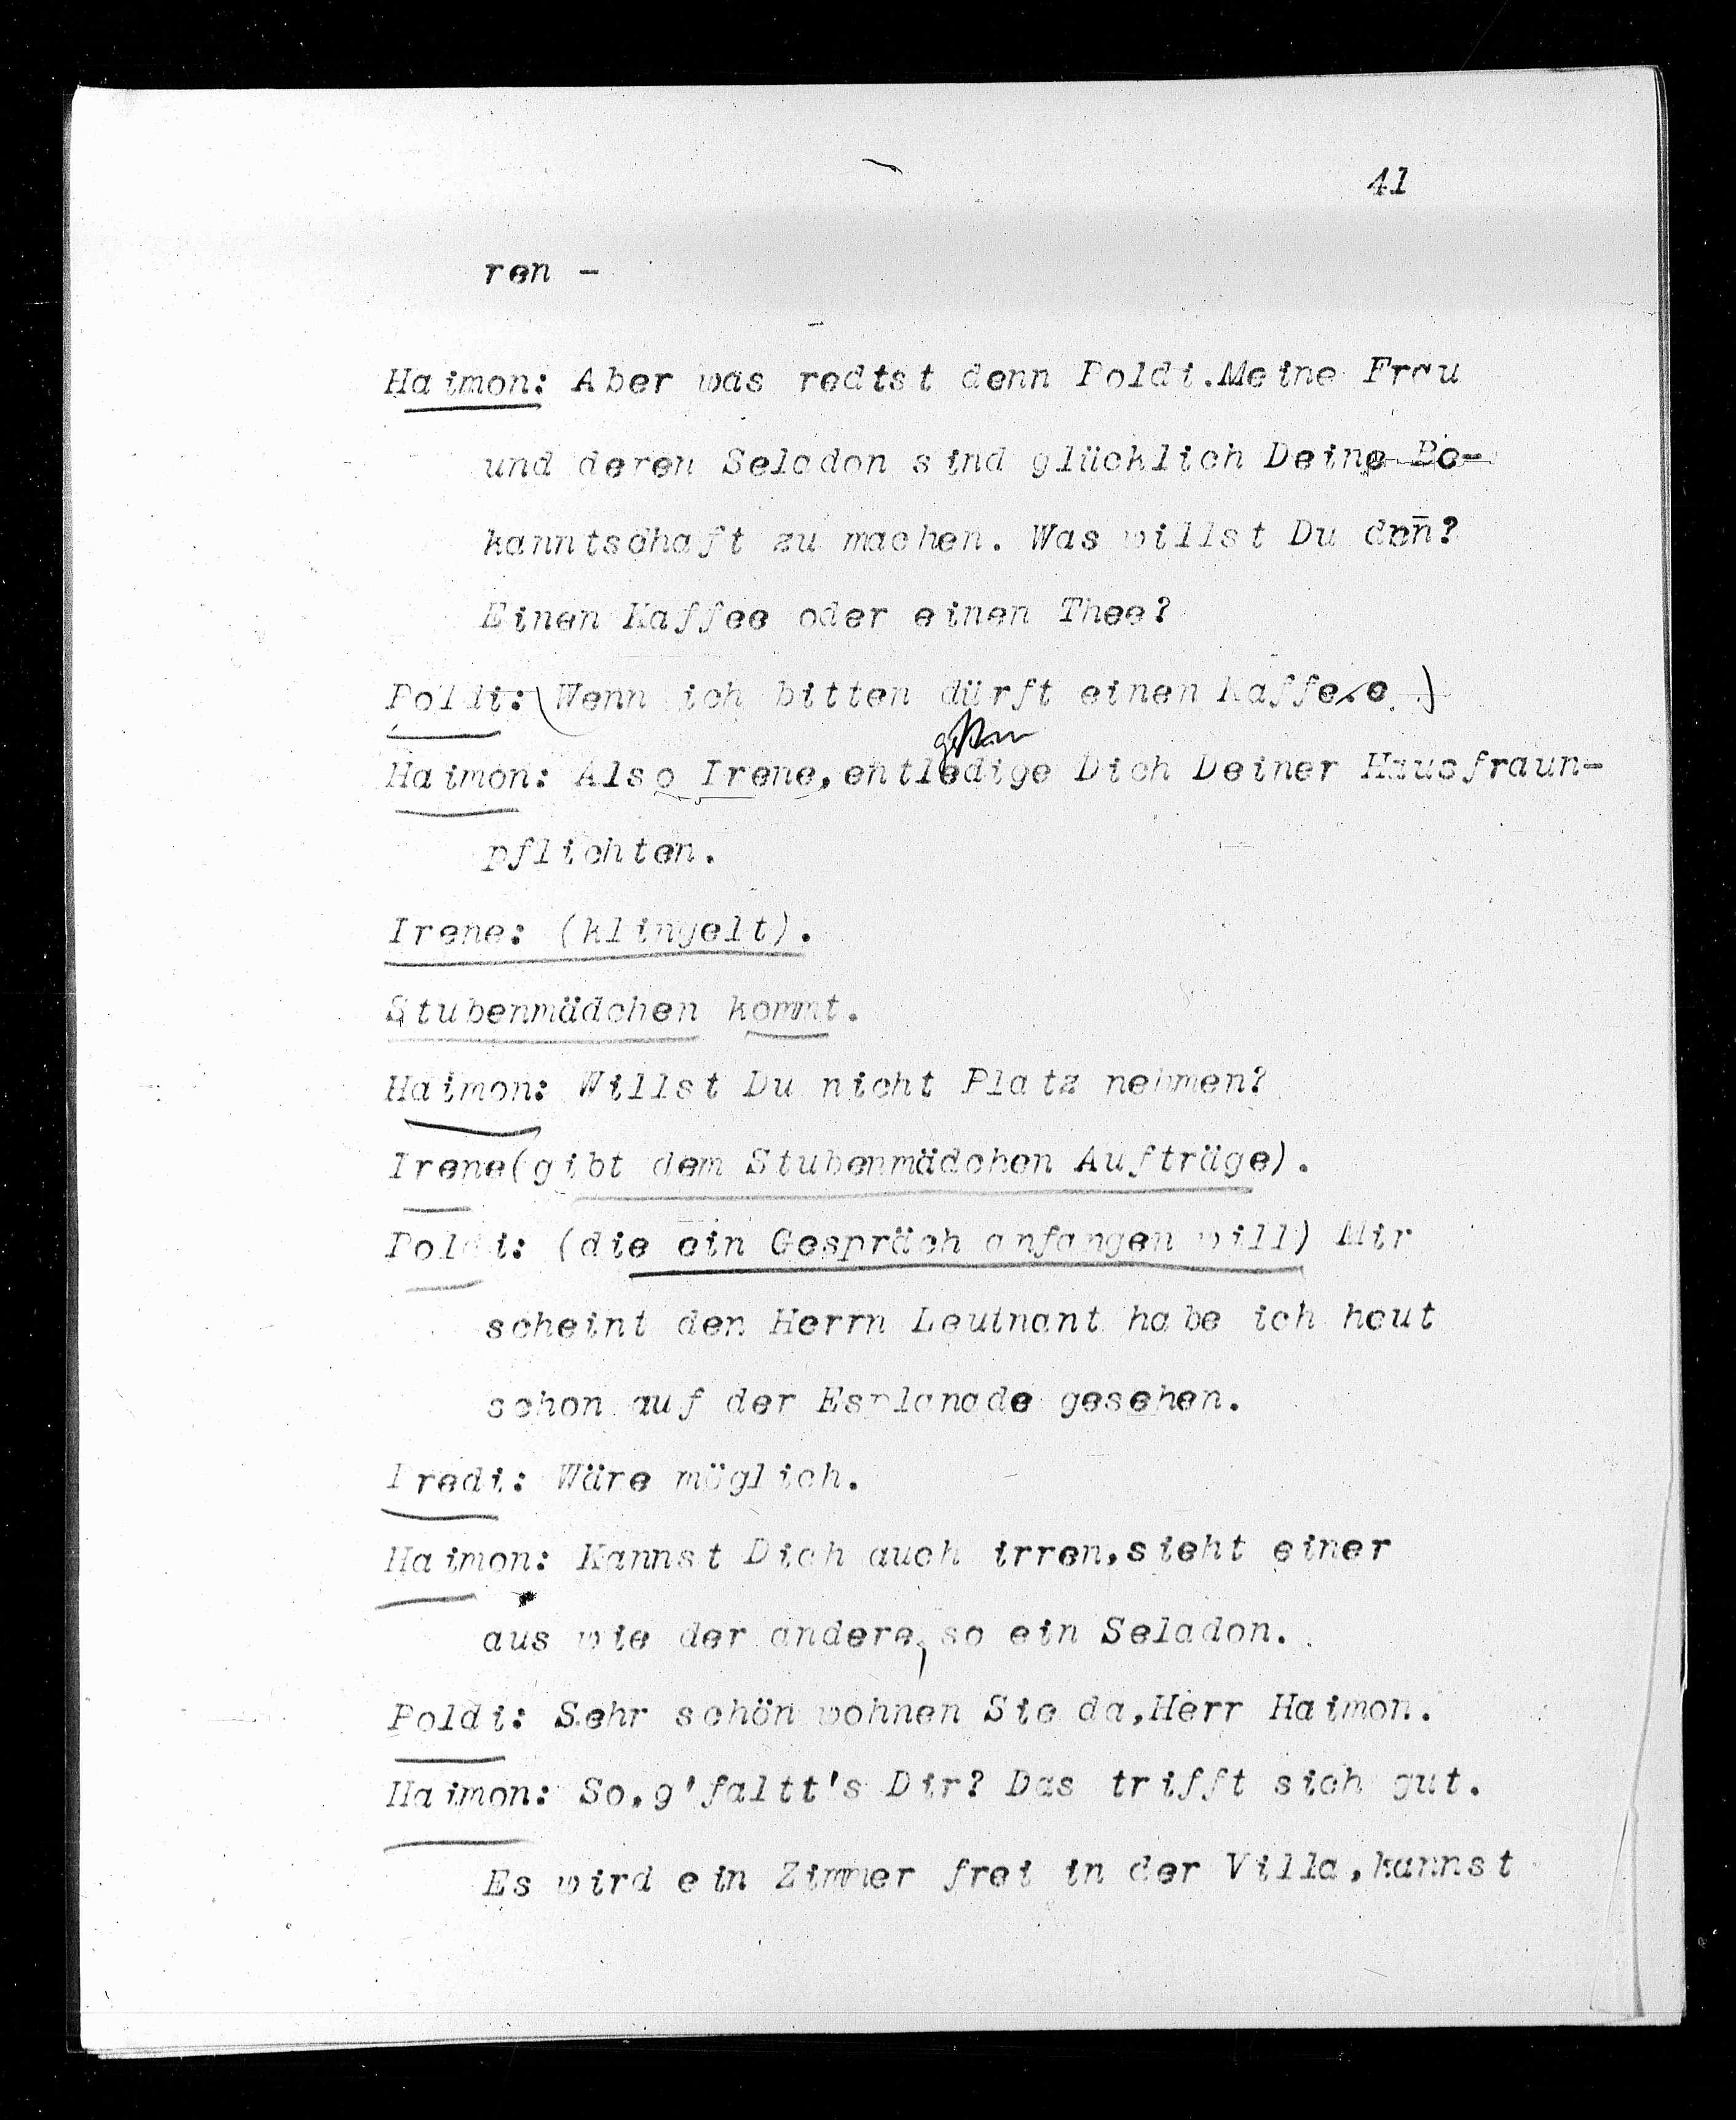 41
ren -
Haimon: Aber was redtst denn Poldi.Meine Frau
und deren Seladon sind glücklich Deine Be-
kanntschaft zu machen. Was willst Du den̄?
Einen Kaffee oder einen Thee?
Poldi:(Wenn ich bitten dürft einen Kaffee.)
Haimon: Also Irene,entledige Dich Deiner Hausfraun-
pflichten.
Irene: (klingelt).
Stubenmädchen kommt.
Haimon: Willst Du nicht Platz nehmen?
Irene(gibt dem Stubenmädchen Aufträge).
Poldi: (die ein Gespräch anfangen will) Mir
scheint den Herrn Leutnant habe ich heut
schon auf der Esplanade gesehen.
Fredi: Wäre möglich.
Haimon: Kannst Dich auch irren,sieht einer
aus wie der andere, so ein Seladon.
Poldi: Sehr schön wohnen Sie da,Herr Haimon.
Haimon: So,g'faltt's Dir? Das trifft sich gut.
Es wird ein Zimmer frei in der Villa,kannst